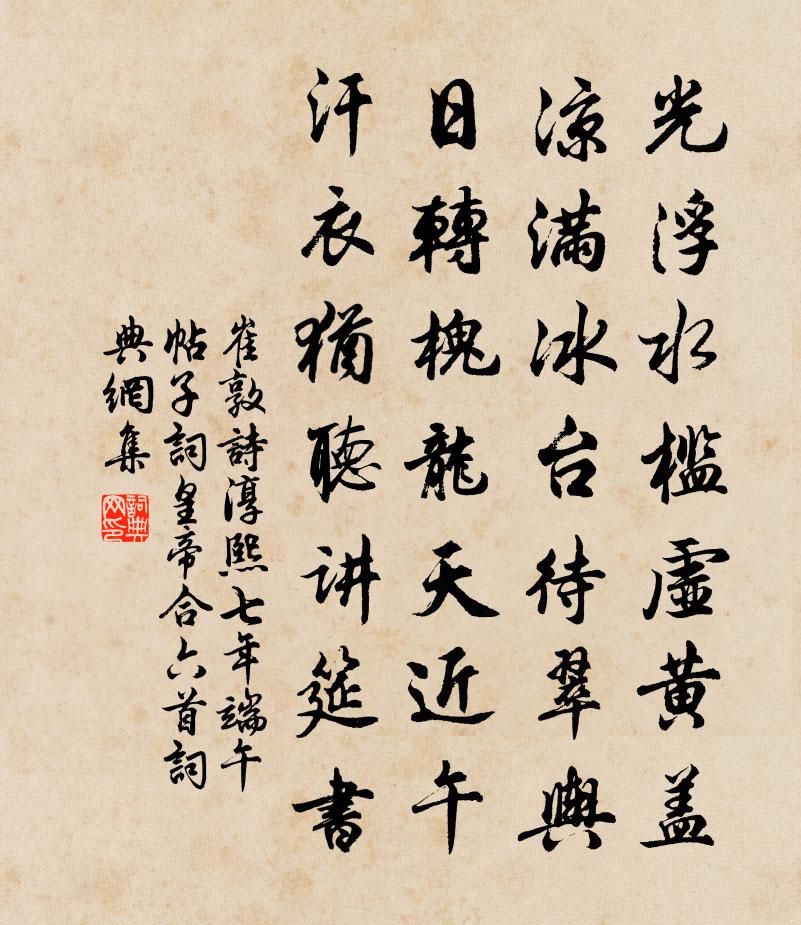 光浮水槛虚黄盖
凉满冰台待翠舆
日轉槐龍天近午
汗衣猶聽讲筵書
崔敦詩淳熙七年端午
帖子詞皇帝合六首詞
典網集
詞典网印